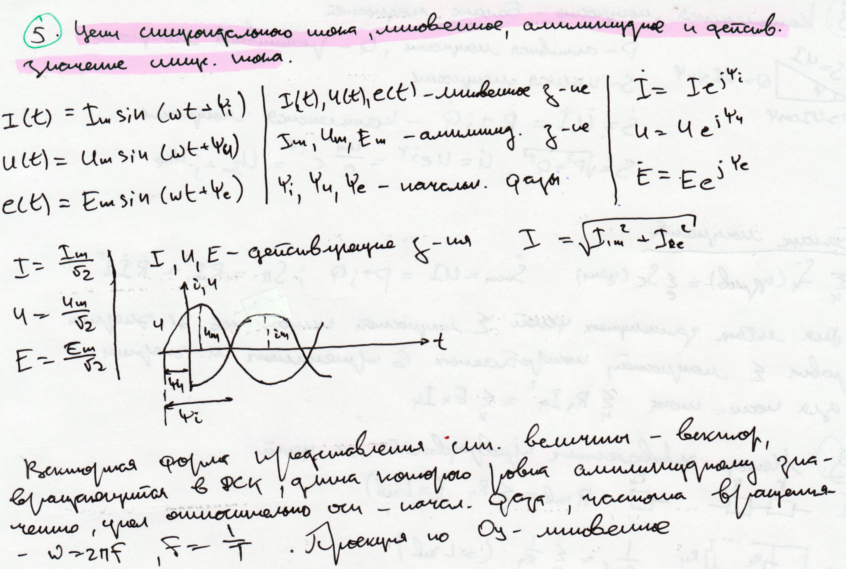 5. Цепи синусоидального тока, мгновенное, амплитудное и действ.
значение синус. тока.
I(t) = Im sin (ωt+Ψi)
U(t) = Um sin (ωt+Ψu)
e(t) = Em sin (ωt+Ψe)
I(t), U(t), e(t) – мгновенное з-ие
Im, Um, Em – амплитуд. з-ие
Ψi, Ψu, Ψe – начальн. фазы
İ = I e^jΨi
U = U e^jΨu
Ė = E e^jΨe
I = Im/√2
U = Um/√2
E = Em/√2
I, U, E – действующие з-ия
I = √(I Im² + I Re²)
i, u
u
Um
im
t
Ψu
Ψi
Векторная форма представления син. величины – вектор,
вращающийся в ДСК, длина которого равна амплитудному зна-
чению, угол относительно оси – начал. фаза, частота вращения
- ω = 2πf, f = 1/T. Проекция по Оу – мгновенное